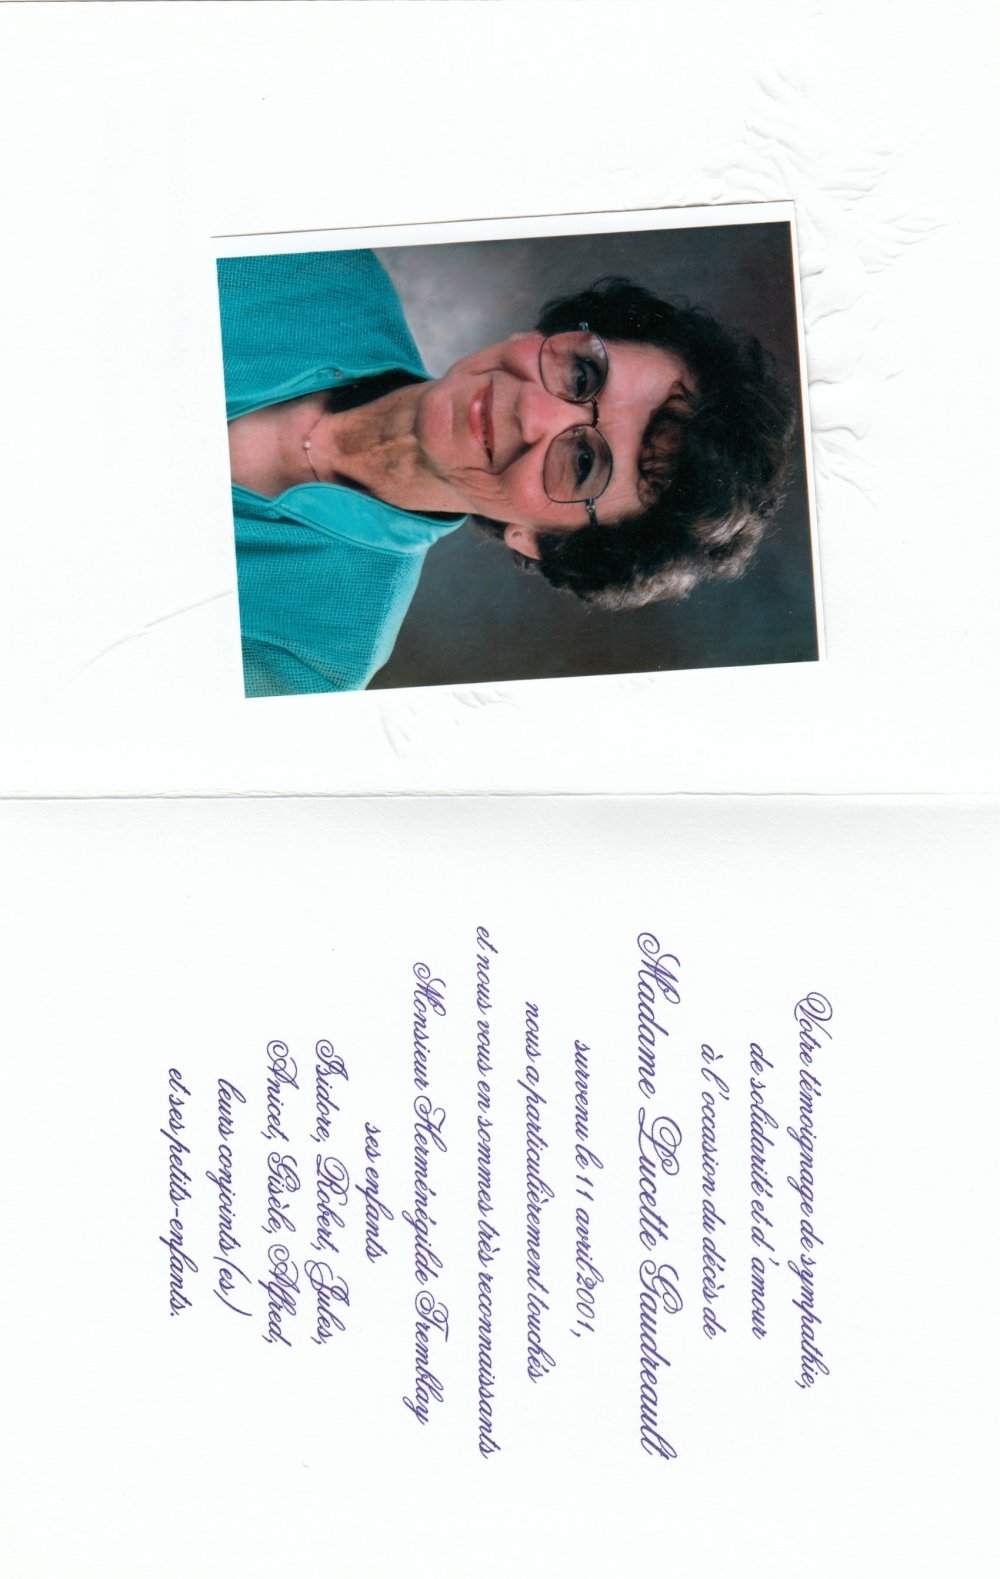 Votre témoignage de sympathie,
de solidarité et d'amour
à l'occasion du décès de
Madame Lucette Gaudreault
survenu le 11 avril 2001,
nous a particulièrement touchés
et nous vous en sommes très reconnaissants
Monsieur Herménégilde Tremblay
ses enfants
Isidore, Robert, Jules,
Anicet, Gisèle, Alfred,
leurs conjoints(es)
et ses petits-enfants.